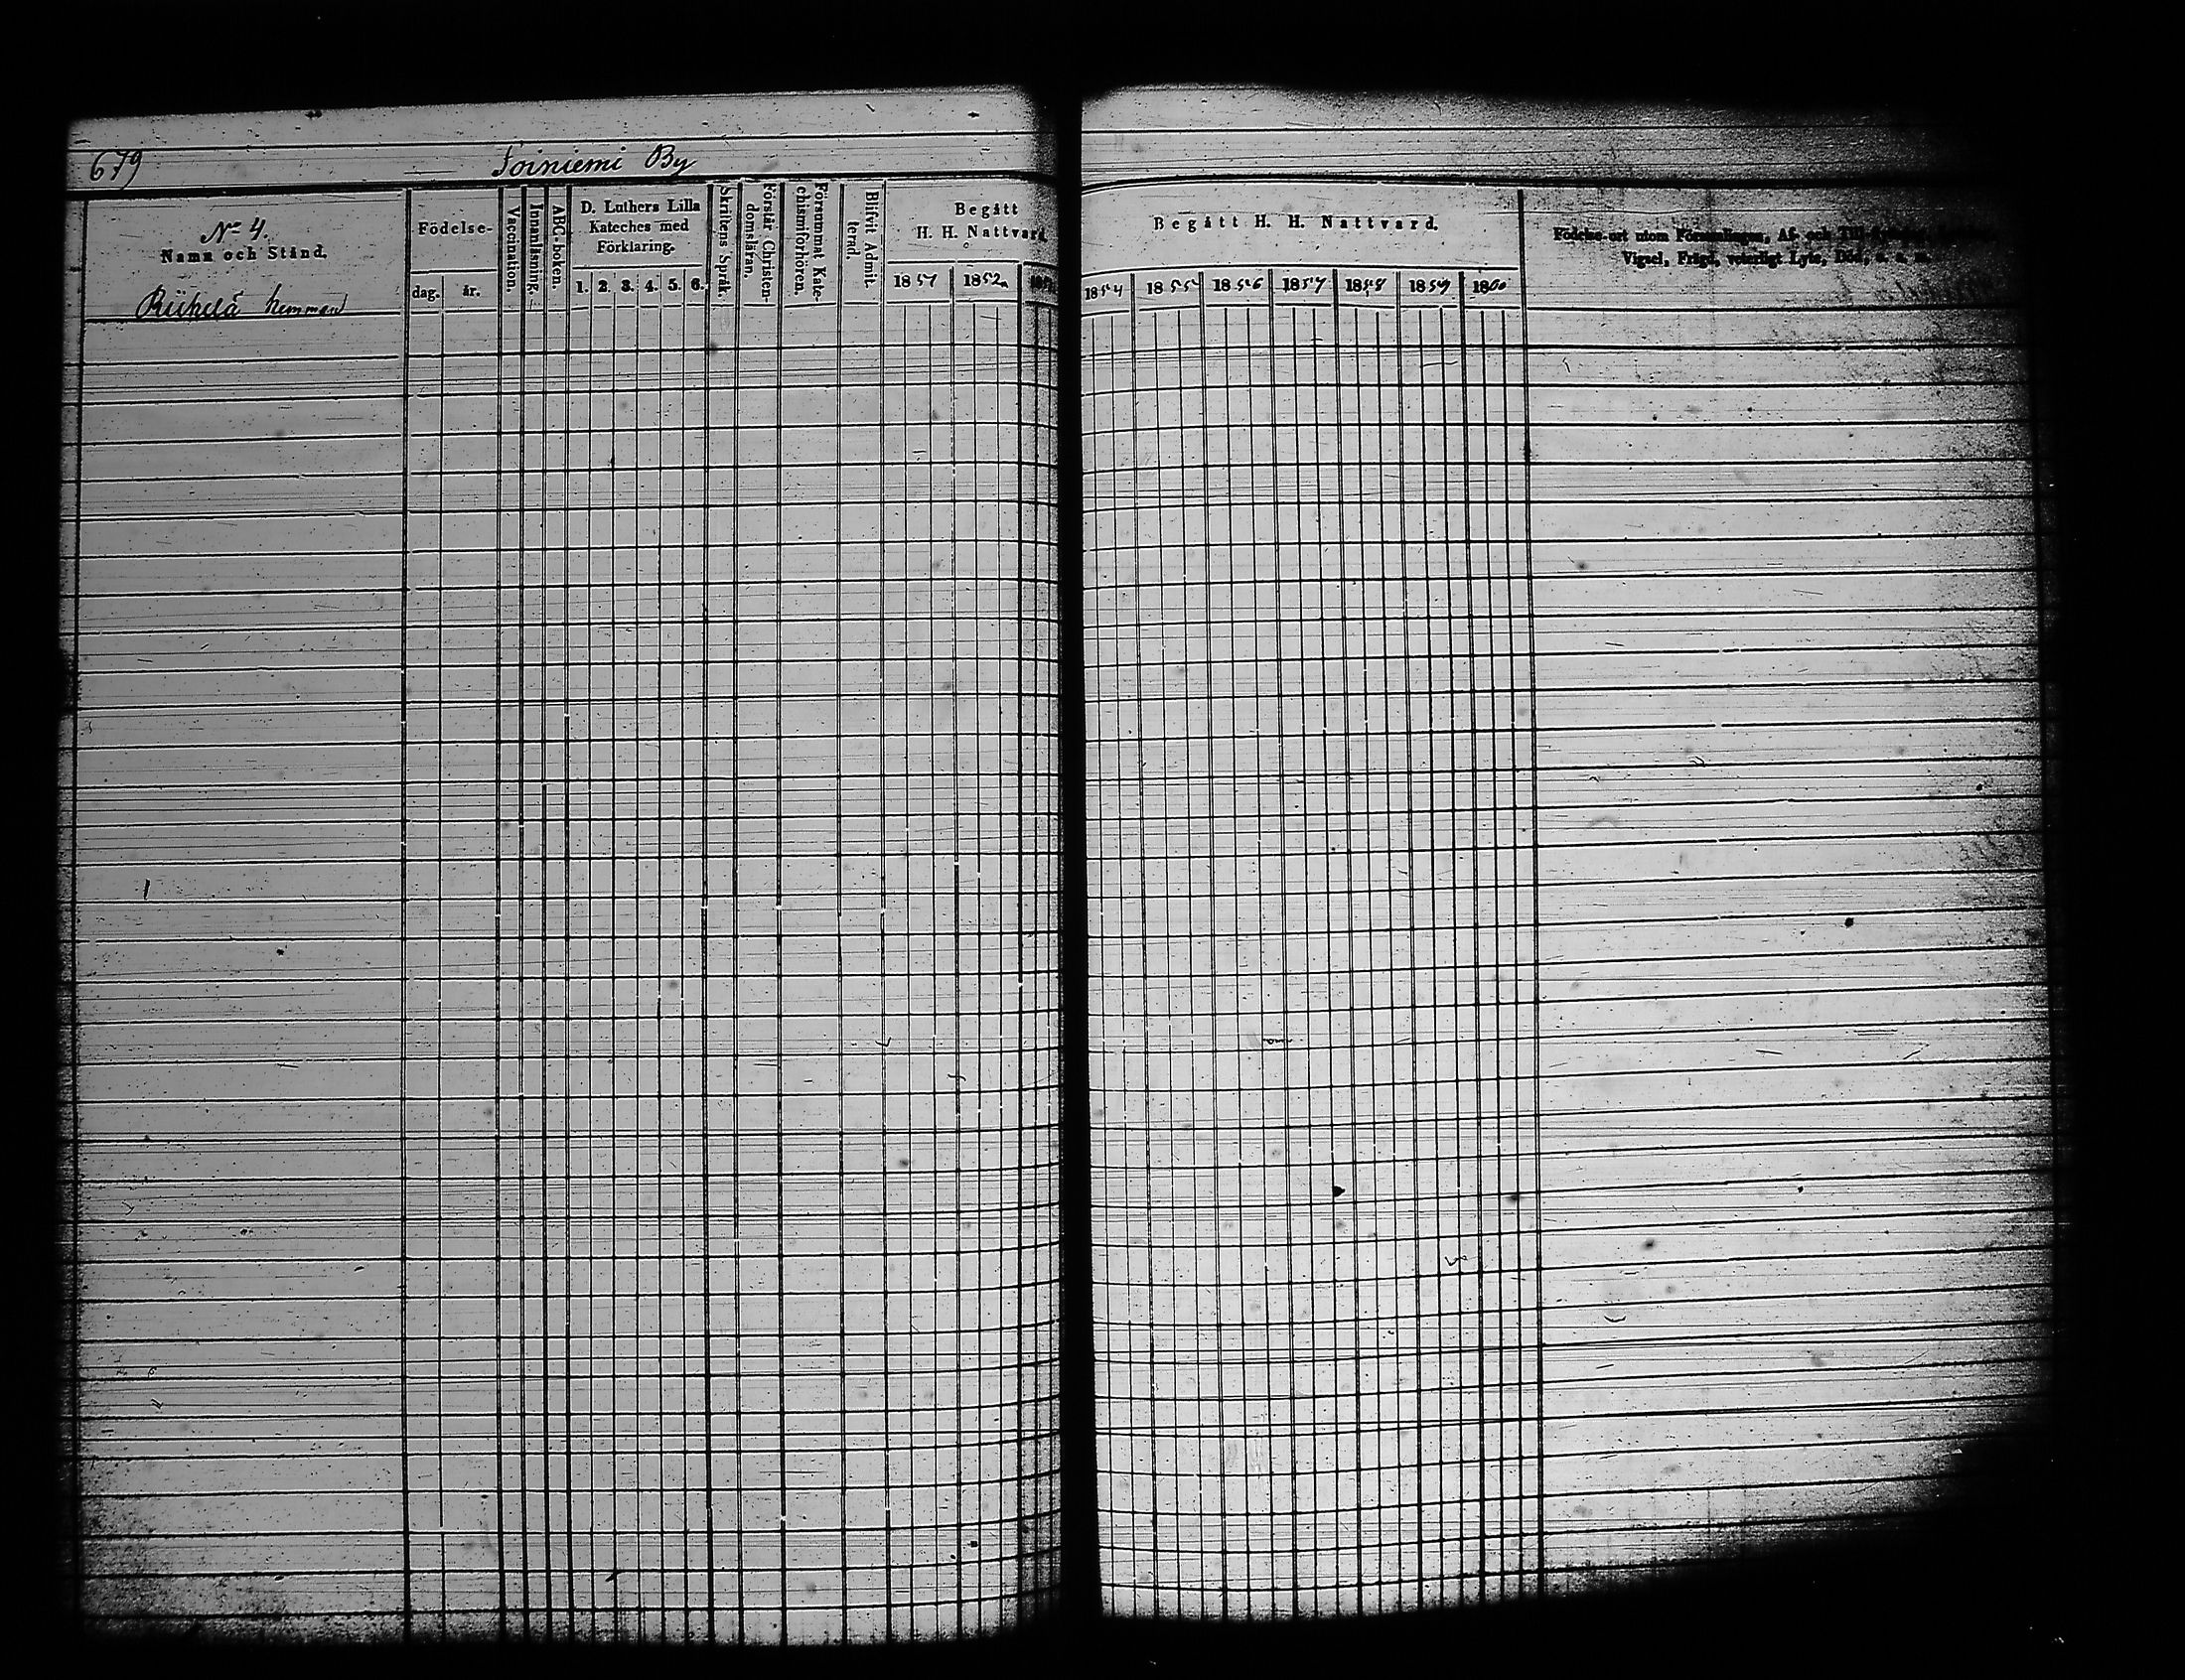 679
Toiniemi By
No 4.
Namn och Stånd.
Riihelä hemman
Födelse-
dag.
år.
Vaccination.
Innanläsning.
ABC-boken.
D. Luthers Lilla
Kateches med
Förklaring.
1. 2. 3. 4. 5. 6.
Skriftens Språk.
Förstår Christen-
domsläran.
Försummat Kate-
chismiförhören.
Blifvit Admit-
terad.
Begått
H. H. Nattvard
1851 1852
Begått H. H. Nattvard.
1854 1855 1856 1857 1858 1859 1860
Födelse-ort utom Församlingen, Af- och Till
Vigsel, Frägd, veterligt Lyte, Död, s. s. m.